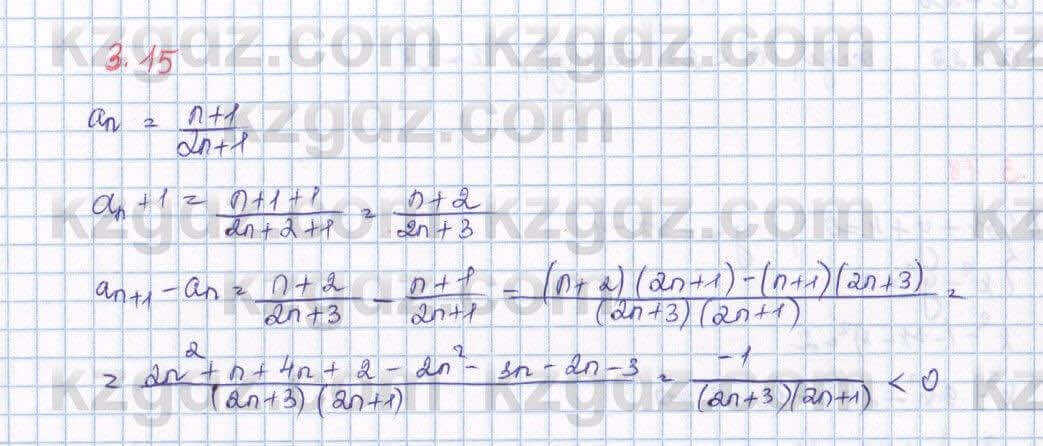 kzgdz.com kzgdz.com kz
3.15
aₙ = (n+1)/(2n+1)
kzgdz.com
aₙ+1 = (n+1+1)/(2n+2+1) = (n+2)/(2n+3)
kzgdz.com kzgdz.com kz
aₙ₊₁ - aₙ = (n+2)/(2n+3) - (n+1)/(2n+1) = ((n+2)(2n+1)-(n+1)(2n+3))/((2n+3)(2n+1)) =
kzgdz.com
= (2n²+n+4n+2-2n²-3n-2n-3)/((2n+3)(2n+1)) = -1/((2n+3)(2n+1)) < 0
kzgdz.com kzgdz.com kz